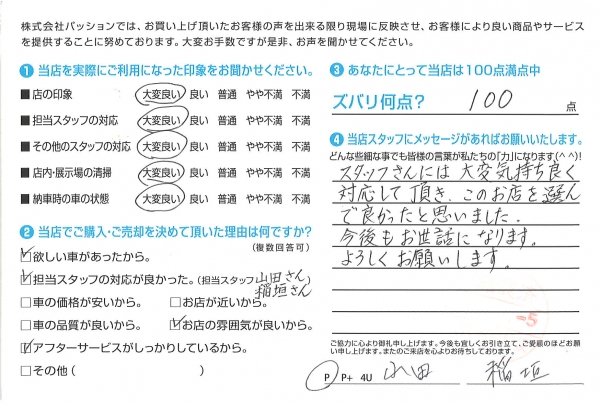 株式会社パッションでは、お買い上げ頂いたお客様の声を出来る限り現場に反映させ、お客様により良い商品やサービス
を提供することに努めております。大変お手数ですが是非、お声を聞かせてください。
❶ 当店を実際にご利用になった印象をお聞かせください。
■ 店の印象 大変良い 良い 普通 やや不満 不満
■ 担当スタッフの対応 大変良い 良い 普通 やや不満 不満
■ その他のスタッフの対応 大変良い 良い 普通 やや不満 不満
■ 店内・展示場の清掃 大変良い 良い 普通 やや不満 不満
■ 納車時の車の状態 大変良い 良い 普通 やや不満 不満
❷ 当店でご購入・ご売却を決めて頂いた理由は何ですか？
(複数回答可)
☑欲しい車があったから。
☑担当スタッフの対応が良かった。(担当スタッフ 山田さん
稲垣さん
□車の価格が安いから。 □お店が近いから。
□車の品質が良いから。 ☑お店の雰囲気が良いから。
☑アフターサービスがしっかりしているから。
□その他 ( )
❸ あなたにとって当店は100点満点中
ズバリ何点？ 100 点
❹ 当店スタッフにメッセージがあればお願いいたします。
どんな些細な事でも皆様の言葉が私たちの「力」になります(^^)!
スタッフさんには大変気持ち良く
対応して頂き、このお店を選ん
で良かったと思いました。
今後もお世話になります。
よろしくお願いします。
-5
ご協力に心より御礼申し上げます。今後も宜しくお引き立て、ご愛顧のほどお願
い申し上げます。またのご来店を心よりお待ちしております。
P P+ 4U 山田 稲垣